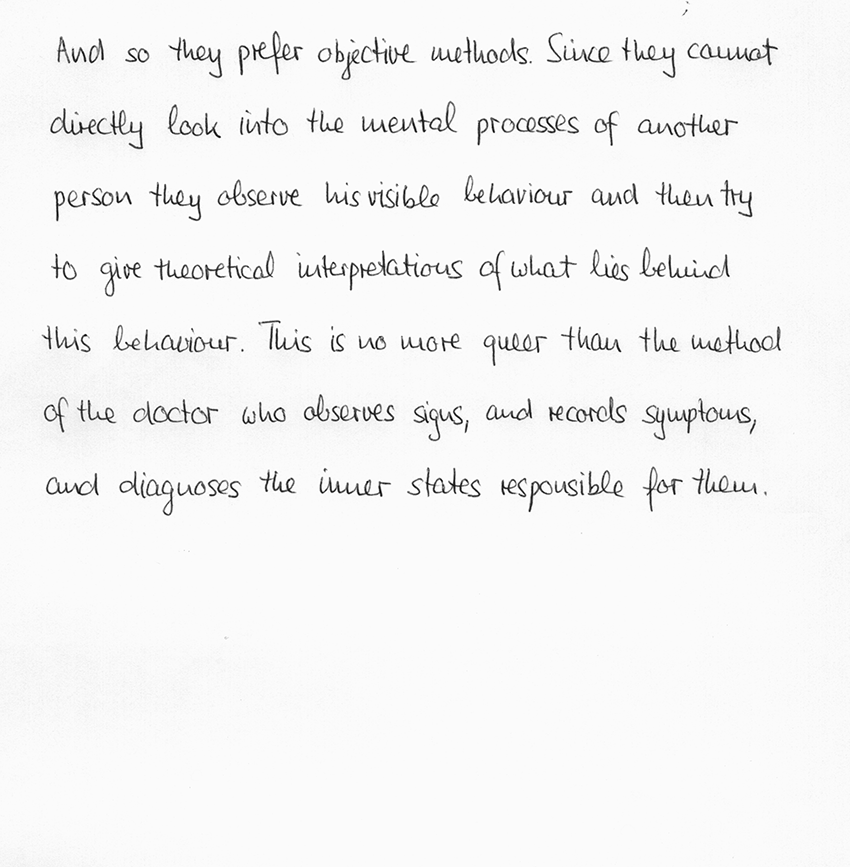 And so they prefer objective methods. Since they cannot
directly look into the mental processes of another
person they observe his visible behaviour and then try
to give theoretical interpretations of what lies behind
this behaviour. This is no more queer than the method
of the doctor who observes signs, and records symptoms,
and diagnoses the inner states responsible for them.